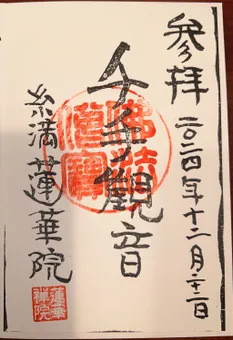 参拝 二〇二四年十二月廿二日
千手観音
佛法僧寶
糸満蓮華院
蓮華禅院